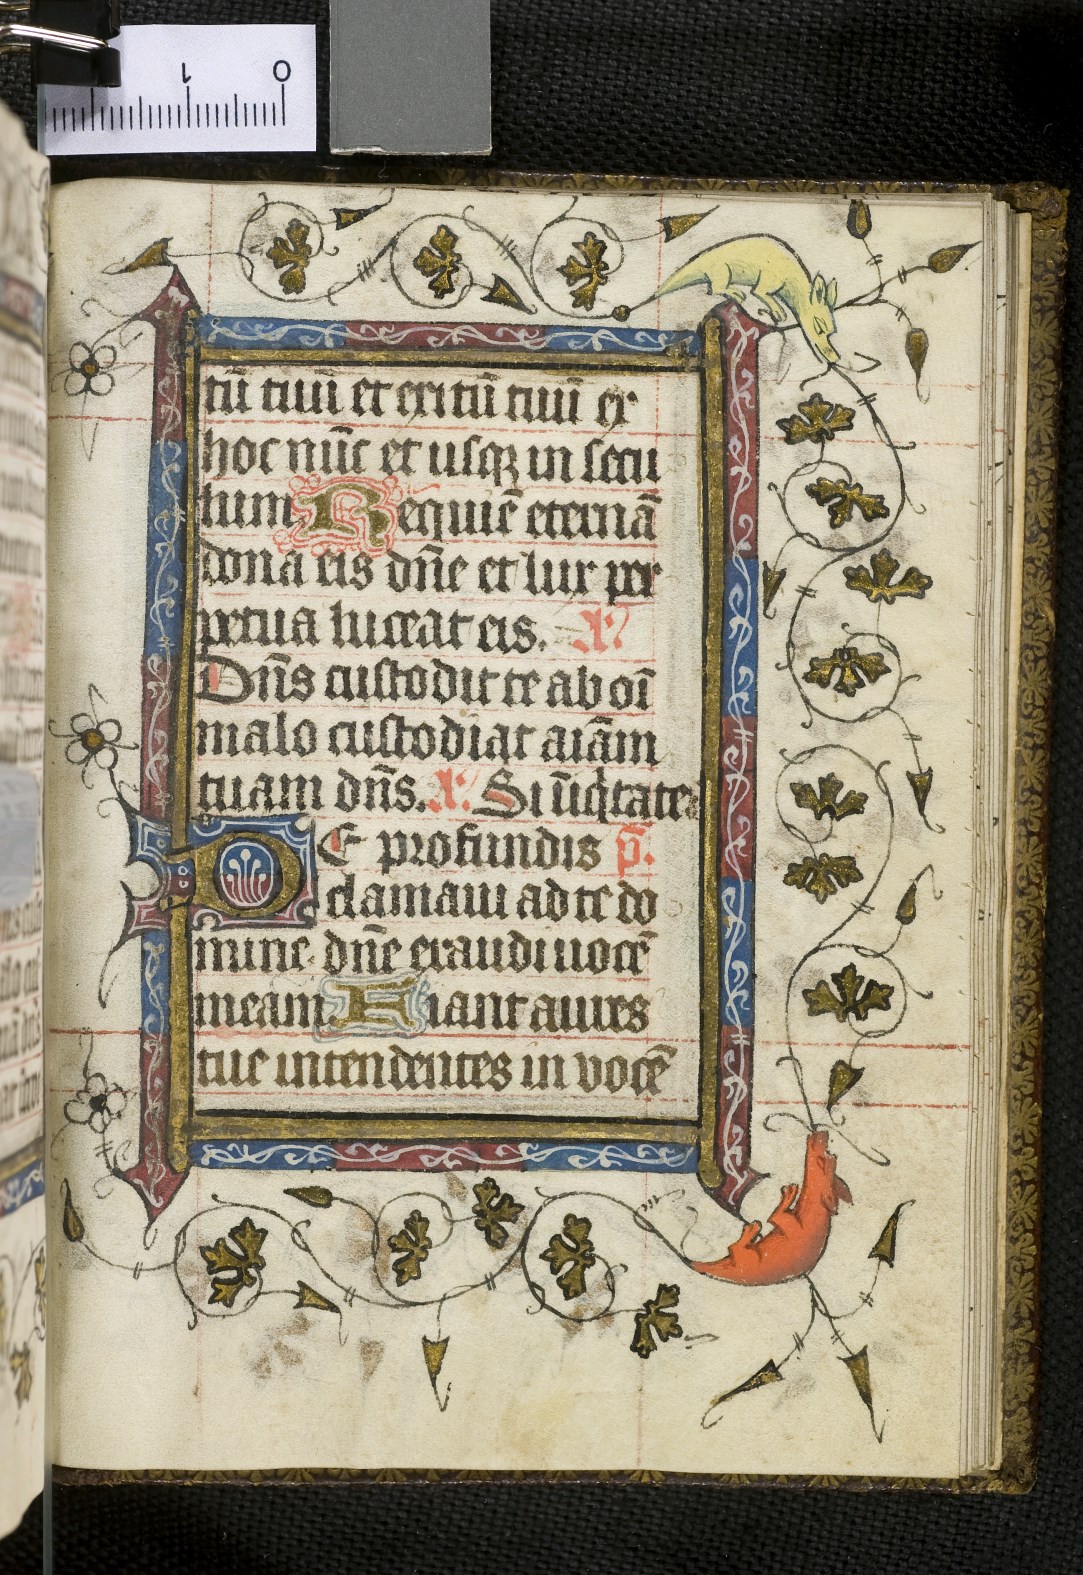 1 0
tū tuū et exitū tuū ex
hoc nūc et usqꝫ in secu
lum Requiē eternā
dona eis dn̄e et lux per
petua luceat eis. A᷎
Dn̄s custodit te ab oī
malo custodiat aīam
tuam dn̄s. A᷎ Si īiq̇tates
DE profundis p̄.
clamaui ad te do
mine dn̄e exaudi uocē
meam Fiant aures
tue intendentes in vocē